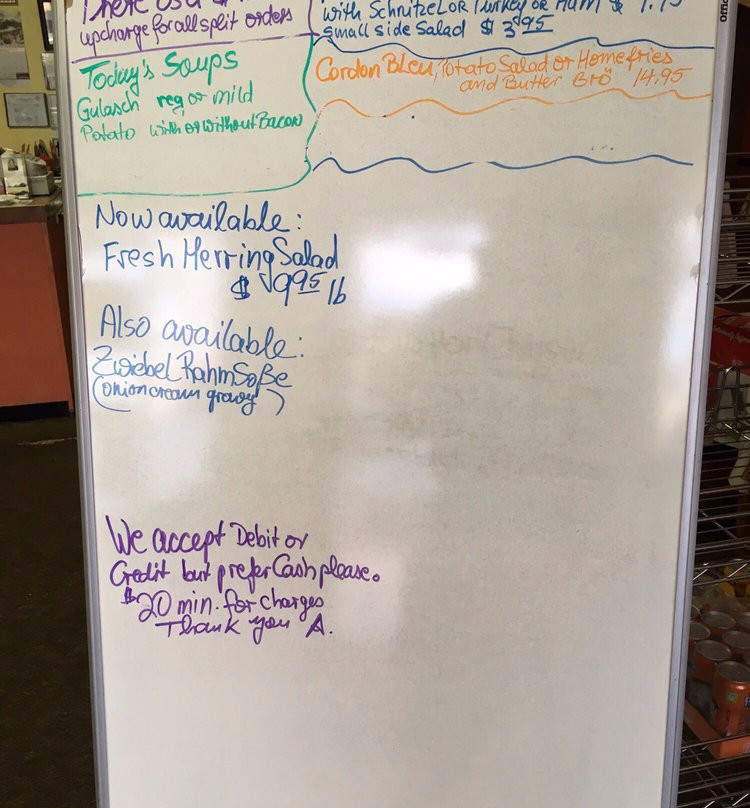 There is a
upcharge for all split orders
with Schnitzel or Turkey or Ham $
small side salad $ 3.95
Today's Soups
Gulasch reg or mild
Potato with or without Bacon
Cordon Bleu, Potato Salad or Homefries
and Butter Brö 14.95
Now available:
Fresh Herring Salad
$ 9.95 lb
Also available:
Zwiebel RahmSoße
(onion cream gravy)
We accept Debit or
Credit but prefer Cash please.
$20 min. for charges
Thank you A.